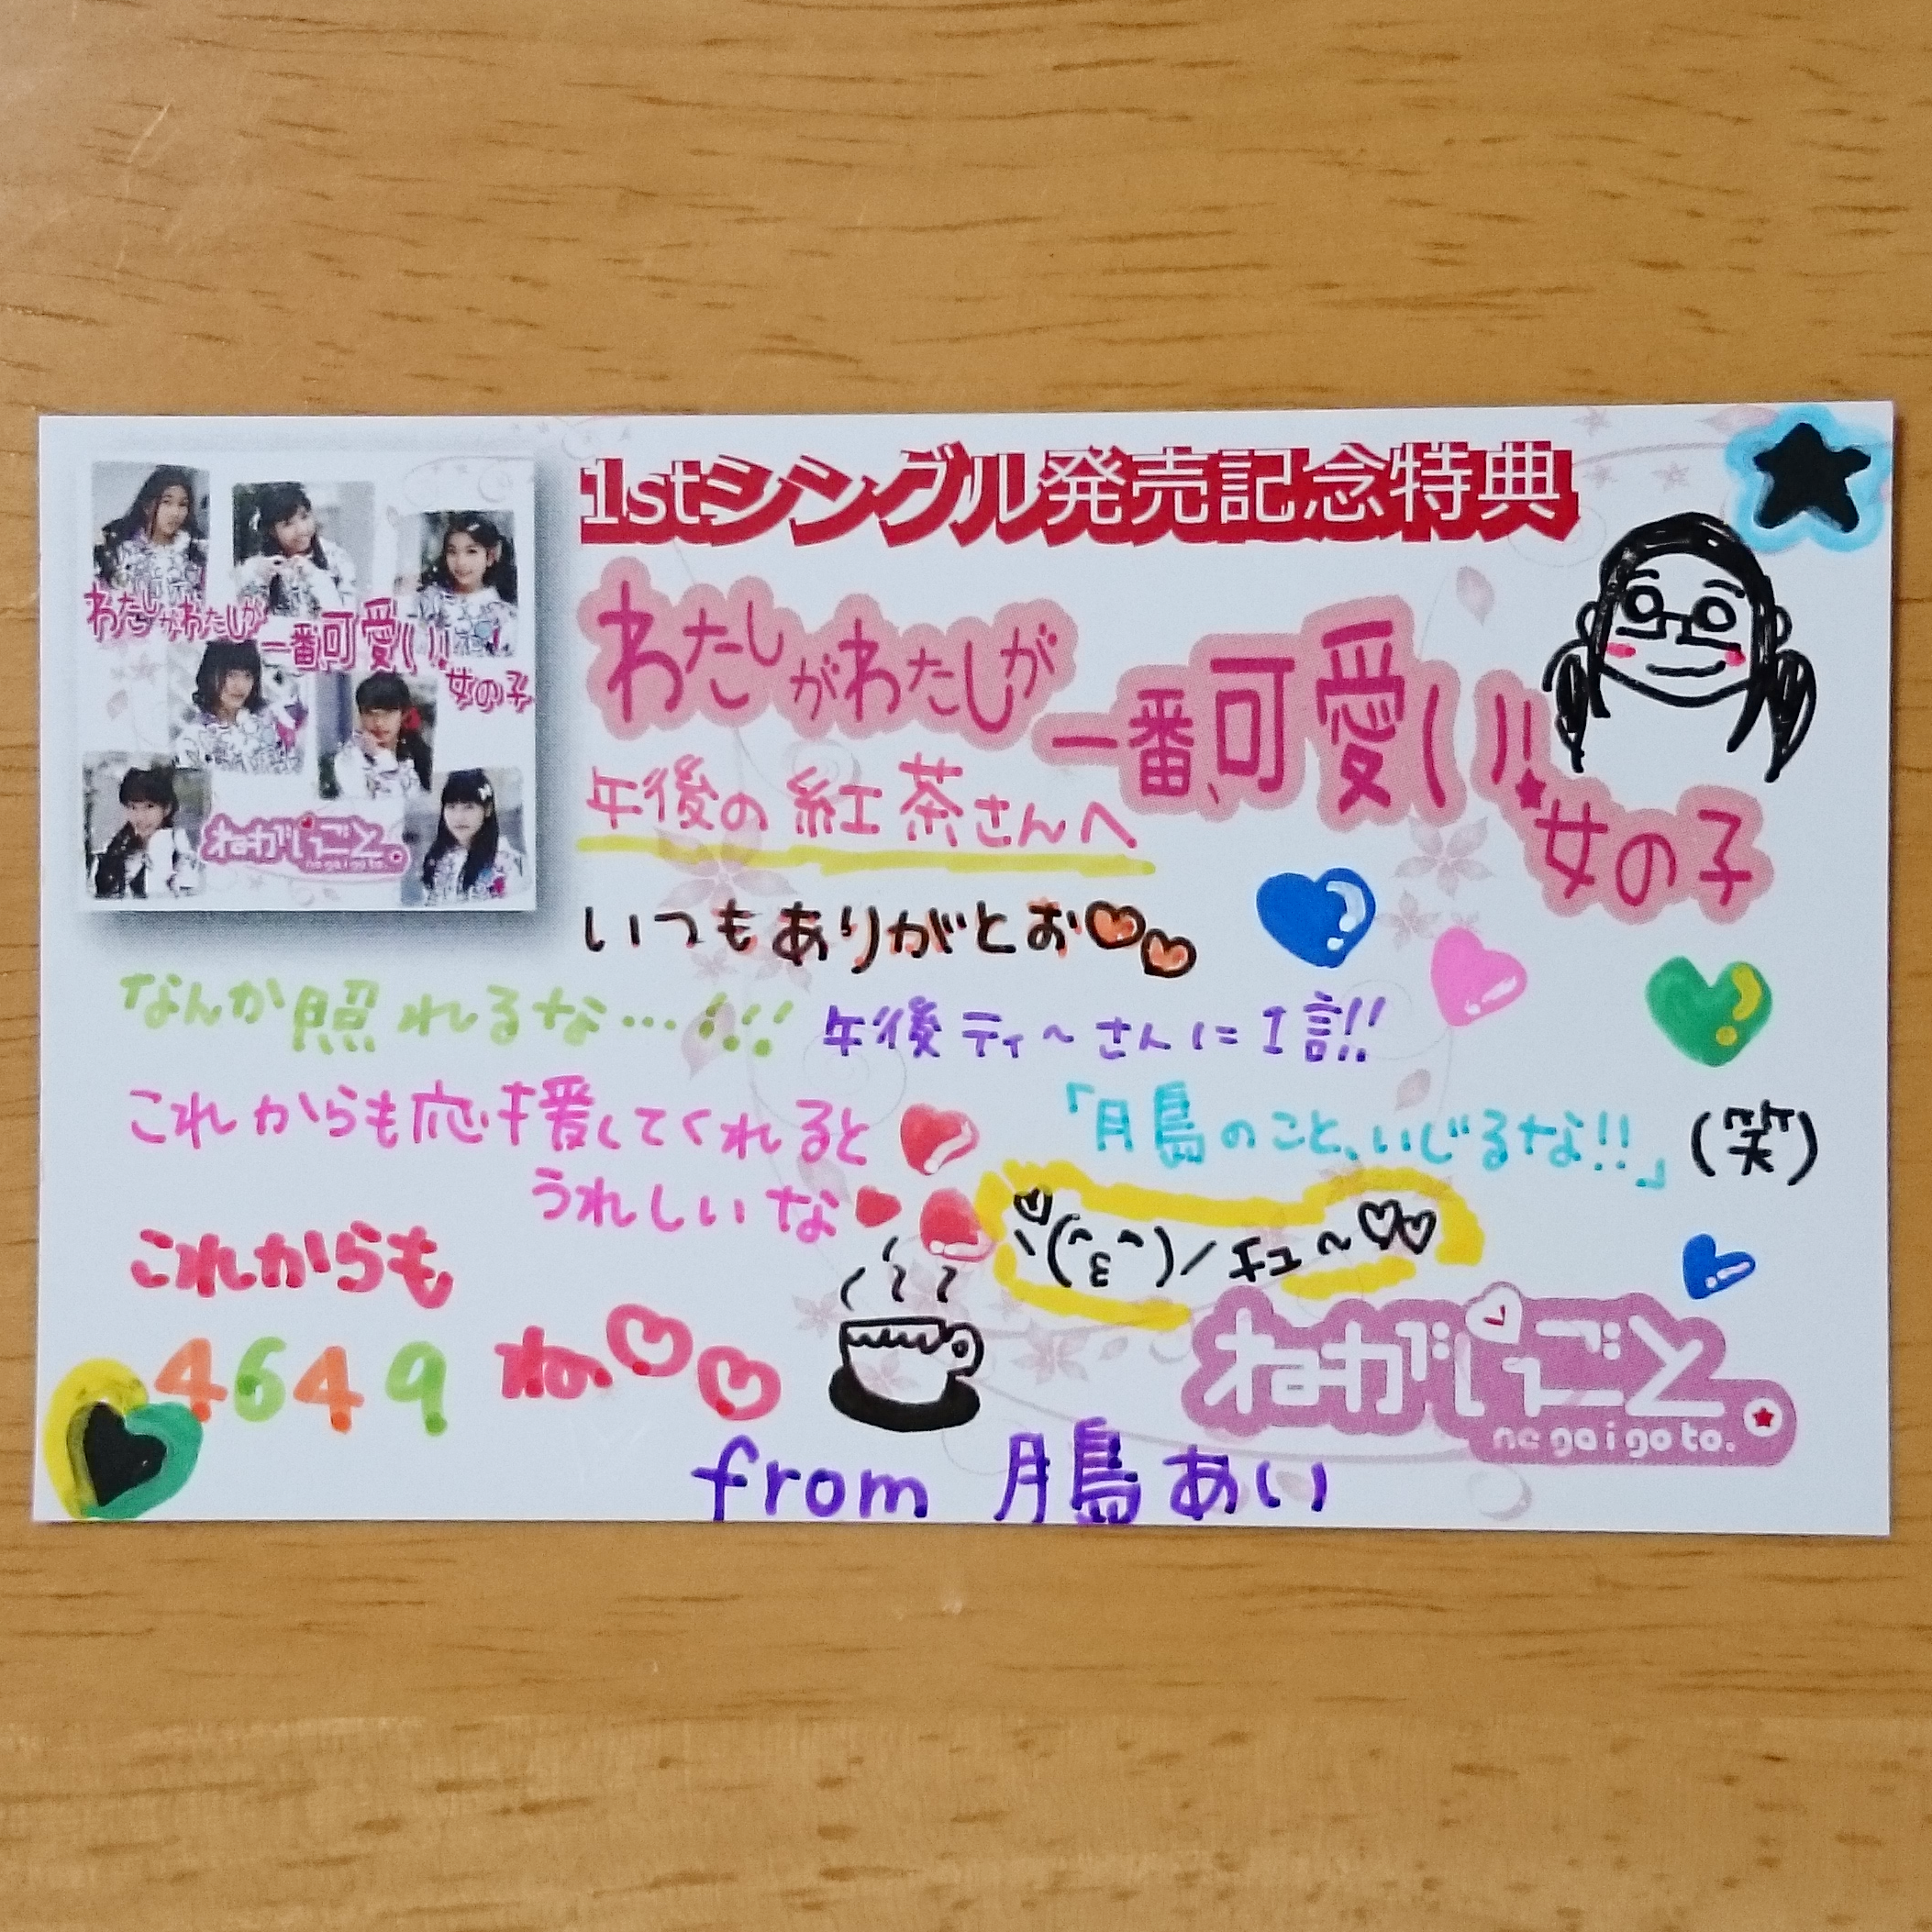 1stシングル発売記念特典
わたしがわたしが
一番、可愛い!
女の子
わたしがわたしが
一番、可愛い!
女の子
ねがいごと。
negaigoto.
午後の紅茶さんへ
いつもありがとお
なんか照れるな…!!!
午後ティ〜さんに1言!!
これからも応援してくれると
うれしいな
「月島のこと、いじるな!!」(笑)
ヽ(^ε^)ノ チュ〜♡♡
これからも
4649 ね。
ねがいごと。
negaigoto.
from 月島あい